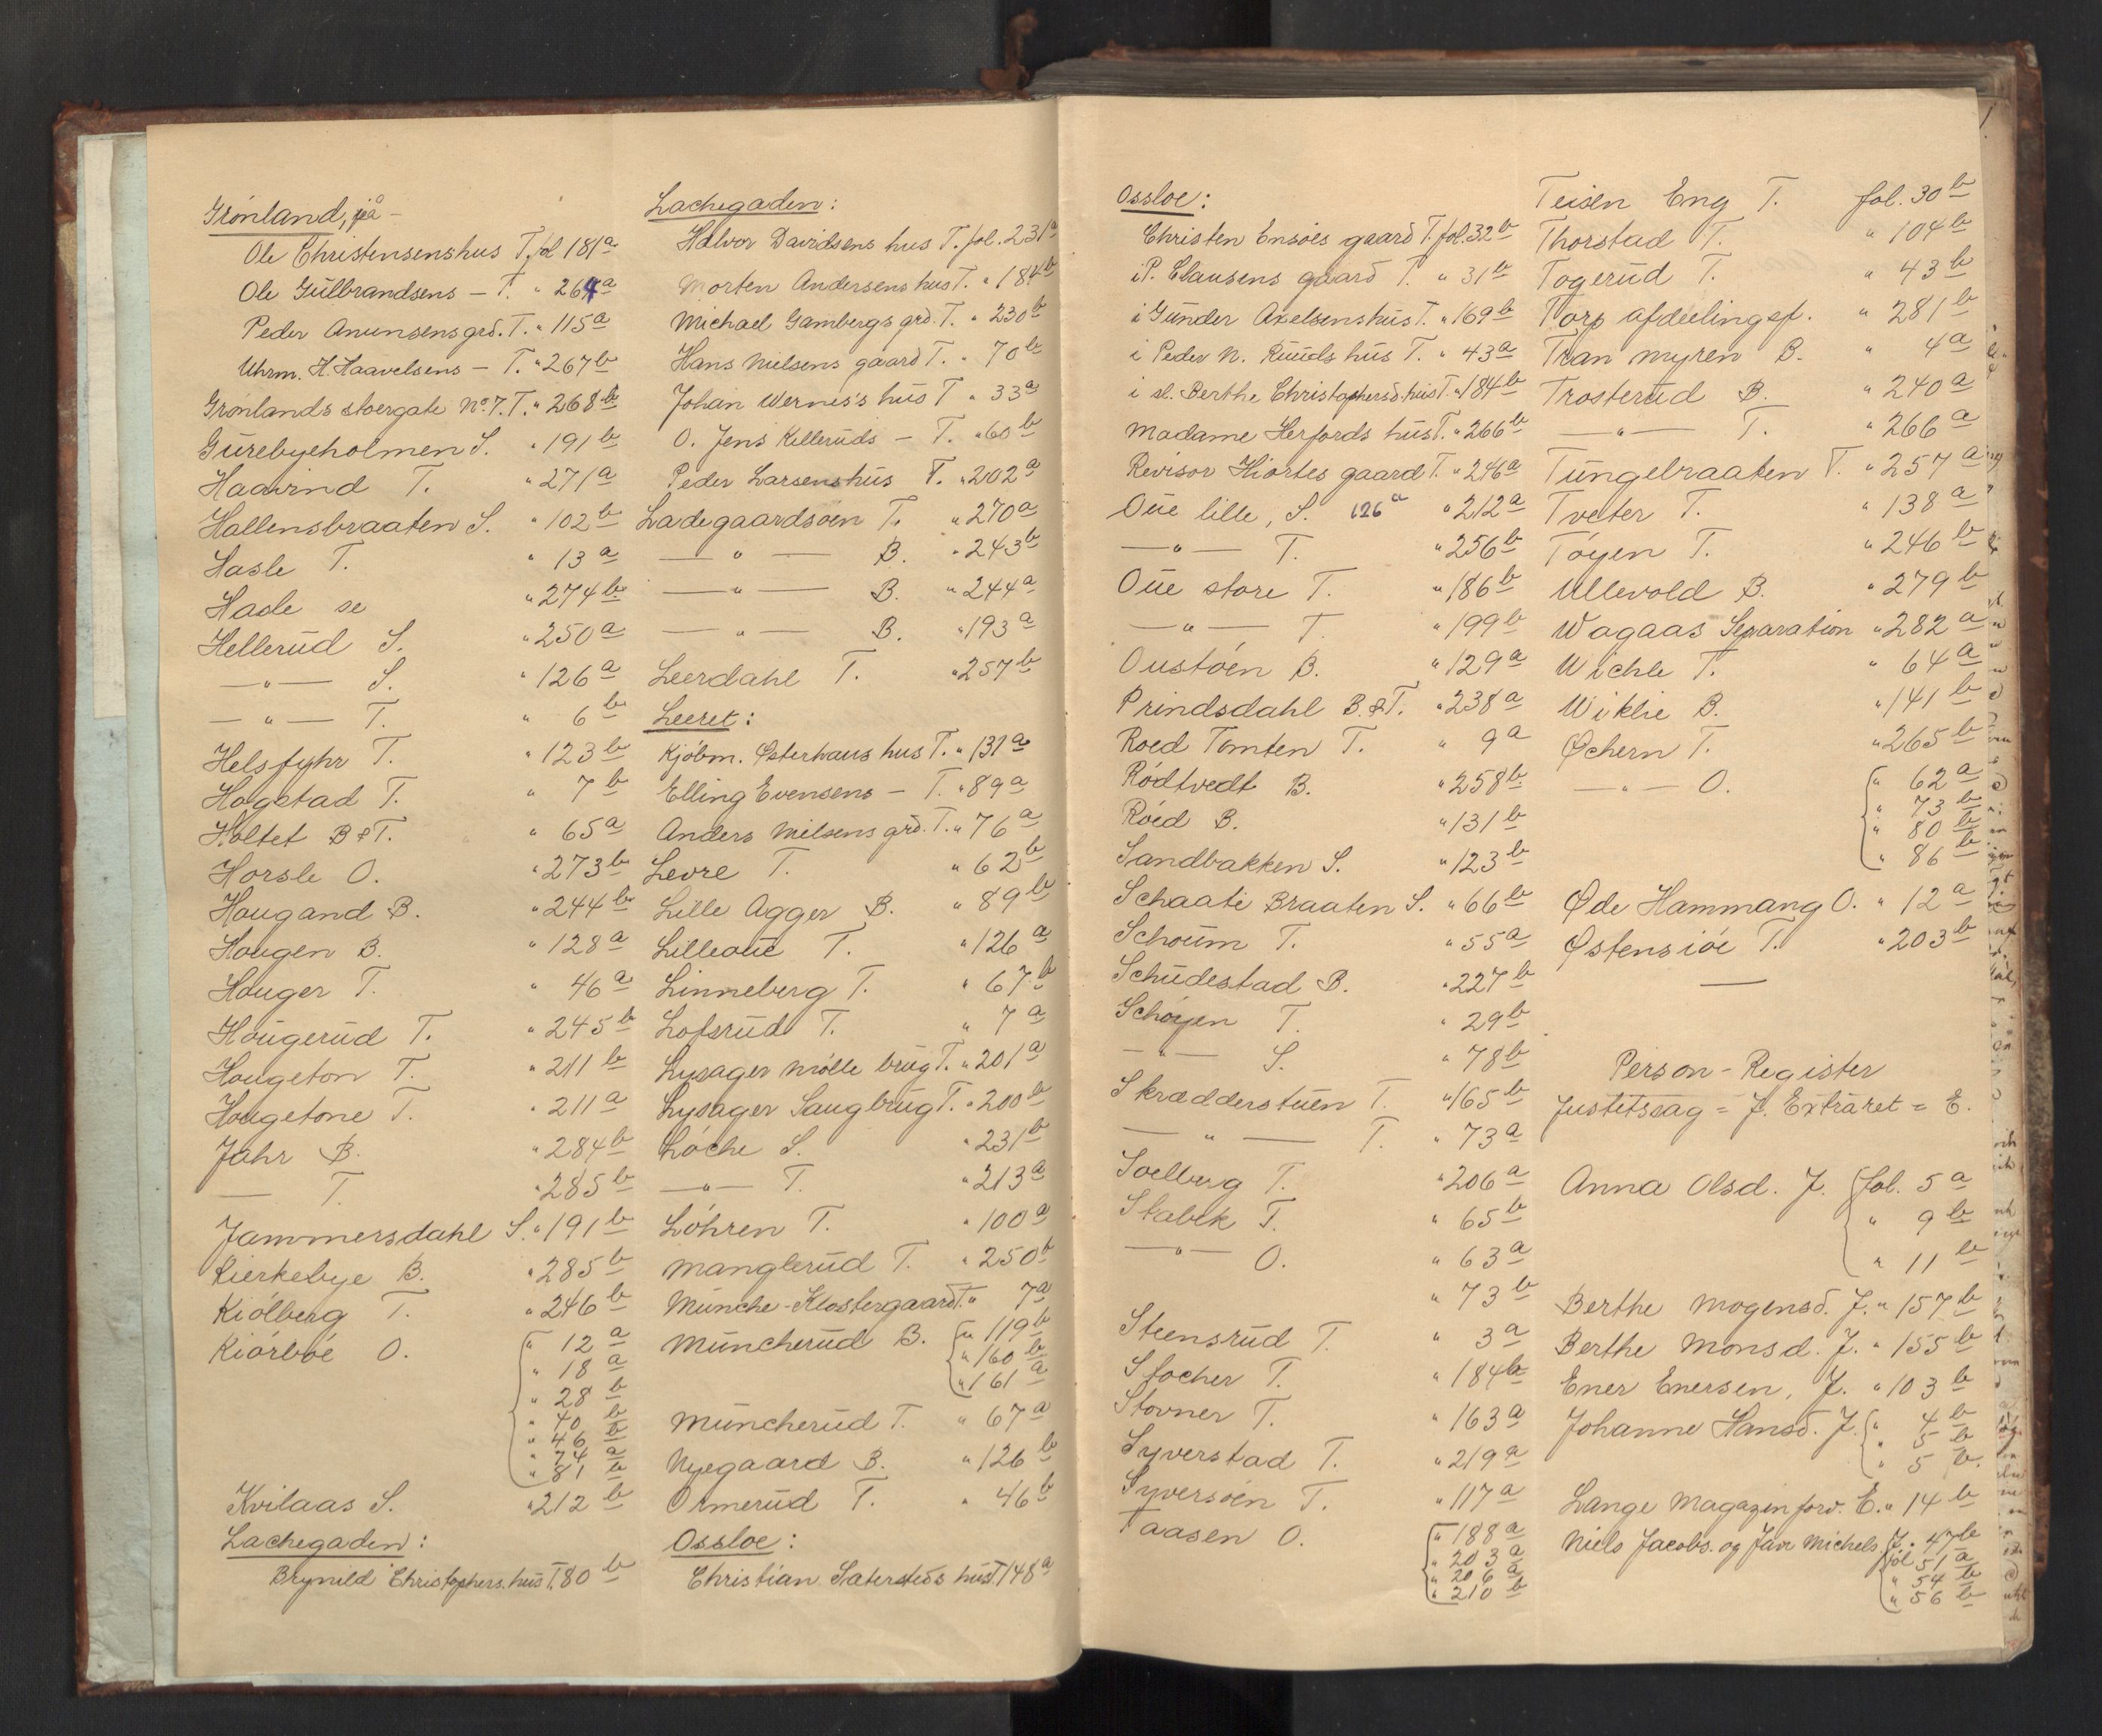 Grönland, på -
Ole Christensens hus T. fol 181a
Ole Gulbrandsens — T. " 264a
Peder Anunsens grd. T. " 115a
Uhrm. H. Haavelsens — T. " 267b
Grönlands stoergate No. 7. T. " 268b
Gurebyeholmen S. " 191b
Haavind T. " 271a
Hallensbraaten S. " 102b
Hasle T. " 13a
Hasle se " 274b
Hellerud S. " 250a
— " — S. " 126a
— " — T. " 6b
Helsfyhr T. " 123b
Hogstad T. " 7b
Holtet B & T. " 65a
Horsle O. " 273b
Hougand B. " 244b
Hougen B. " 128a
Houger T. " 46a
Hougerud T. " 245b
Hougeton T. " 211b
Hougetone T. " 211a
Jahr B. " 284b
— T. " 285b
Jammersdahl S. " 191b
Kierkebye B. " 285b
Kiölberg T. " 246b
Kiörboe O. " 12a
" 18a
" 28b
" 40b
" 46b
" 74a
" 81b
Kvilaas S. " 212b
Lachegaden:
Brynild Christophers. hus T. 80b
Lachegaden:
Halvor Davidsens hus T. fol. 231a
Morten Andersens hus T. " 184b
Michael Gambergs grd. T. " 230b
Hans Nielsens gaard T. " 70b
Johan Wernes's hus T " 33a
O. Jens Kelleruds — T. " 60b
Peder Larsens hus T. " 202a
Ladegaardsöen T. " 270a
— " — B. " 243b
— " — B. " 244a
— " — B. " 193a
Leerdahl T. " 257b
Leeret:
Kjöbm. Østerhaus hus T. " 131a
Elling Evensens — T. " 89a
Anders Nielsens grd. T. " 76a
Levre T. " 62b
Lille Agger B. " 89b
Lilleoue T. " 126a
Linneberg T. " 67b
Lofsrud T. " 7a
Lysager mölle brug T. " 201a
Lysager Saugbrug T. " 200b
Löche S. " 231b
— " — T. " 213a
Löhren T. " 100a
Manglerud T. " 250b
Munche-Klostergaard T. " 7a
Muncherud B. " 119b
" 160b
" 161a
Muncherud T. " 67a
Nyegaard B. " 126b
Ormerud T. " 46b
Ossloe:
Christian Saterstеds hus T. 148a
Ossloe:
Christen Ensöes gaard T. fol. 32b
i P. Clausens gaard T. " 31b
i Gunder Axelsens hus T. " 169b
i Peder N. Ruuds hus T. " 43a
i sl. Berthe Christophersd. hus T. " 184b
Madame Herfords hus T. " 266b
Revisor Hiortes gaard T. " 246a
Oue lille, S. 126a " 212a
— " — T. " 256b
Oue store T. " 186b
— " — T. " 199b
Oustöen B. " 129a
Prindsdahl B. & T. " 238a
Roed Tomten T. " 9a
Rödtvedt B. " 258b
Röed B. " 131b
Sandbakken S. " 123b
Schaate Braaten S. " 66b
Schoum T. " 55a
Schudestad B. " 227b
Schöyen T. " 29b
— " — S. " 78b
Skrædderstuen T. " 165b
— " — T. " 73a
Soelberg T. " 206a
Stabek T. " 65b
— " — O. " 63a
" 73b
Steensrud T. " 3a
Stocher T. " 184b
Stovner T. " 163a
Syverstad T. " 219a
Syversöen T. " 117a
Taasen O. " 188a
" 203a
" 206a
" 210b
Teisen Eng T. fol. 30b
Thorstad T. " 104b
Togerud T. " 43b
Torp afdeelingsf. " 281b
Tran myren B. " 4a
Trosterud B. " 240a
— " — T. " 266a
Tungelbraaten T. " 257a
Tveter T. " 138a
Töyen T. " 246b
Ullevold B. " 279b
Wagaas Separation " 282a
Wichle T. " 64a
Wiklie B. " 141b
Øchern T. " 265b
— " — O. " 62a
" 73b
" 80b
" 86b
Øde Hammang O. " 12a
Østensiöe T. " 203b
—
Person-Register
Justitssag = J. Extraret = E.
Anna Olsd. J. fol. 5a
" 9b
" 11b
Berthe Mogensd. J. " 157b
Berthe Monsd. J. " 155b
Ener Enersen, J. " 103b
Johanne Hansd. J. " 4b
" 5b
" 5b.
Lange Magazinforv. E. " 14b
Niels Jacobs. og Jan Michels. J. " 47b
fol 51a
" 54b
" 56b
1.